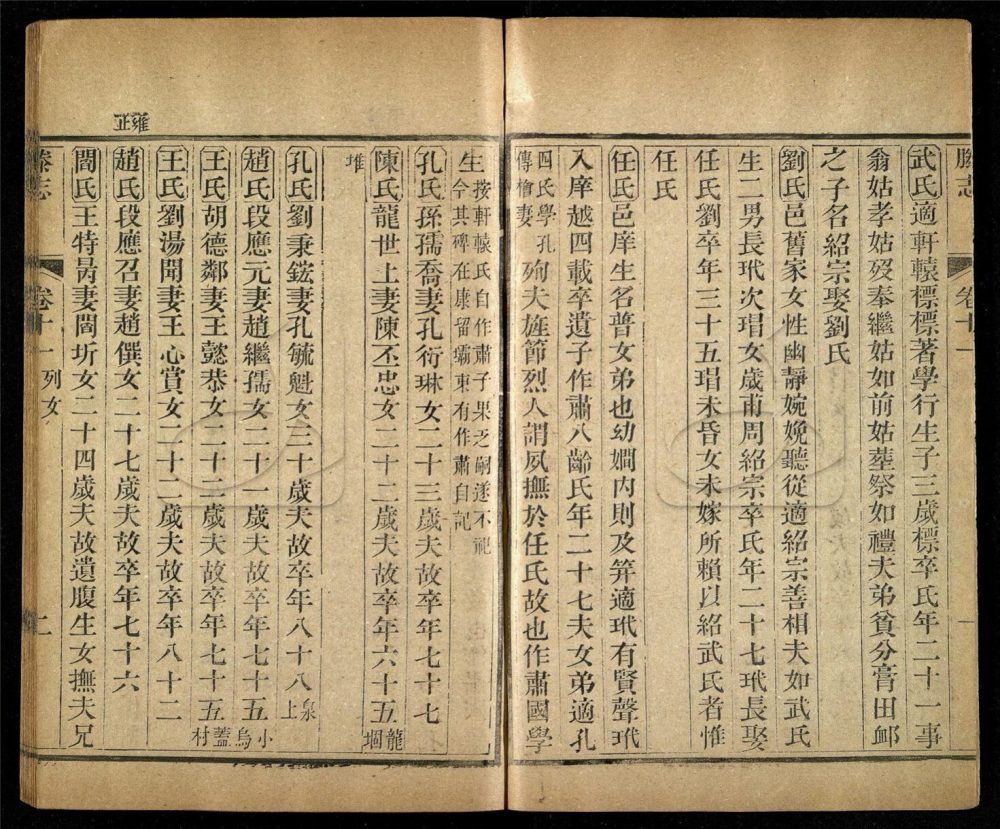 滕志
卷十一
一
武氏適軒轅標標著學行生子三歲標卒氏年二十一事
翁姑孝姑歿奉繼姑如前姑塟祭如禮夫弟貧分膏田邮
之子名紹宗娶劉氏
劉氏邑舊家女性幽靜婉娩聽從適紹宗善相夫如武氏
生二男長玳次瑁女歲甫周紹宗卒氏年二十七玳長娶
任氏劉卒年三十五瑁未昏女未嫁所賴以紹武氏者惟
任氏
任氏邑庠生名普女弟也幼嫺內則及笄適玳有賢聲玳
入庠越四載卒遺子作肅八齡氏年二十七夫女弟適孔
傳檜妻
四氏學孔
殉夫旌節烈人謂夙撫於任氏故也作肅國學
生
按軒轅氏自作肅子果乏嗣遂不祀
今其碑在康留壩東有作肅自記
孔氏孫孺喬妻孔衍琳女二十三歲夫故卒年七十七
陳氏龍世上妻陳丕忠女二十二歲夫故卒年六十五
龍堌
堆
孔氏劉秉鋐妻孔毓魁女三十歲夫故卒年八十八
泉上
雍正
趙氏段應元妻趙繼孺女二十一歲夫故卒年七十五
小烏
王氏胡德鄰妻王懿恭女二十二歲夫故卒年七十五
蓋村
王氏劉湯聞妻王心賞女二十二歲夫故卒年八十二
趙氏段應召妻趙僎女二十七歲夫故卒年七十六
閻氏王特妻閻圻女二十四歲夫故遺腹生女撫夫兄
滕志
卷十一 列女
二